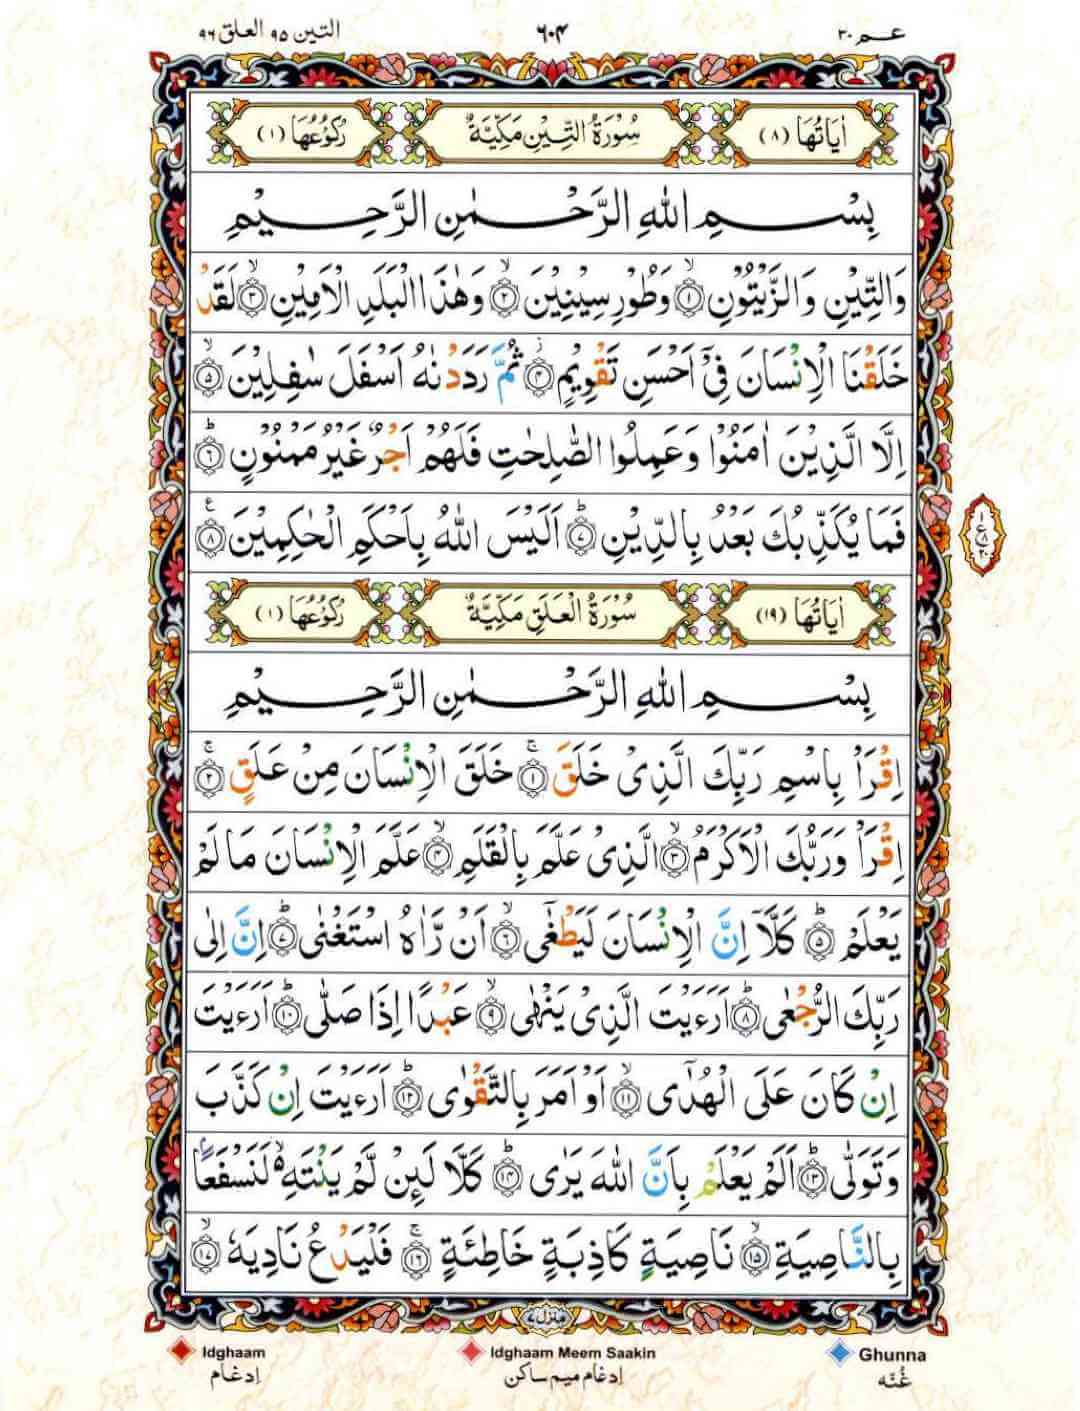 عـم ٣٠ ٦٠٤ التين ٩٥ العلق ٩٦
اٰيَاتُهَا (٨) سُوْرَةُ التِّيْنِ مَكِّيَّةٌ رُكُوْعُهَا (١)
بِسْمِ اللّٰهِ الرَّحْمٰنِ الرَّحِيْمِ
وَالتِّيْنِ وَالزَّيْتُوْنِ ۙ﴿١﴾ وَطُوْرِ سِيْنِيْنَ ۙ﴿٢﴾ وَهٰذَا الْبَلَدِ الْاَمِيْنِ ۙ﴿٣﴾ لَقَدْ
خَلَقْنَا الْاِنْسَانَ فِىْٓ اَحْسَنِ تَقْوِيْمٍ ۫﴿٤﴾ ثُمَّ رَدَدْنٰهُ اَسْفَلَ سٰفِلِيْنَ ۙ﴿٥﴾
اِلَّا الَّذِيْنَ اٰمَنُوْا وَعَمِلُوا الصّٰلِحٰتِ فَلَهُمْ اَجْرٌ غَيْرُ مَمْنُوْنٍ ؕ﴿٦﴾
فَمَا يُكَذِّبُكَ بَعْدُ بِالدِّيْنِ ؕ﴿٧﴾ اَلَيْسَ اللّٰهُ بِاَحْكَمِ الْحٰكِمِيْنَ ﴿٨﴾ ع
١
ع
٨
٢٠
اٰيَاتُهَا (١٩) سُوْرَةُ الْعَلَقِ مَكِّيَّةٌ رُكُوْعُهَا (١)
بِسْمِ اللّٰهِ الرَّحْمٰنِ الرَّحِيْمِ
اِقْرَاْ بِاسْمِ رَبِّكَ الَّذِىْ خَلَقَ ۚ﴿١﴾ خَلَقَ الْاِنْسَانَ مِنْ عَلَقٍ ۚ﴿٢﴾
اِقْرَاْ وَرَبُّكَ الْاَكْرَمُ ۙ﴿٣﴾ الَّذِىْ عَلَّمَ بِالْقَلَمِ ۙ﴿٤﴾ عَلَّمَ الْاِنْسَانَ مَا لَمْ
يَعْلَمْ ؕ﴿٥﴾ كَلَّآ اِنَّ الْاِنْسَانَ لَيَطْغٰٓى ۙ﴿٦﴾ اَنْ رَّاٰهُ اسْتَغْنٰى ؕ﴿٧﴾ اِنَّ اِلٰى
رَبِّكَ الرُّجْعٰى ؕ﴿٨﴾ اَرَءَيْتَ الَّذِىْ يَنْهٰى ۙ﴿٩﴾ عَبْدًا اِذَا صَلّٰى ؕ﴿١٠﴾ اَرَءَيْتَ
اِنْ كَانَ عَلَى الْهُدٰٓى ۙ﴿١١﴾ اَوْ اَمَرَ بِالتَّقْوٰى ؕ﴿١٢﴾ اَرَءَيْتَ اِنْ كَذَّبَ
وَتَوَلّٰى ؕ﴿١٣﴾ اَلَمْ يَعْلَمْ بِاَنَّ اللّٰهَ يَرٰى ؕ﴿١٤﴾ كَلَّا لَئِنْ لَّمْ يَنْتَهِ ۙ۬ لَنَسْفَعًۢا
بِالنَّاصِيَةِ ۙ﴿١٥﴾ نَاصِيَةٍ كَاذِبَةٍ خَاطِئَةٍ ۚ﴿١٦﴾ فَلْيَدْعُ نَادِيَهٗ ۙ﴿١٧﴾
منزل ٧
Idghaam Idghaam Meem Saakin Ghunna
اِدغام اِدغام میم ساکن غُنَّه